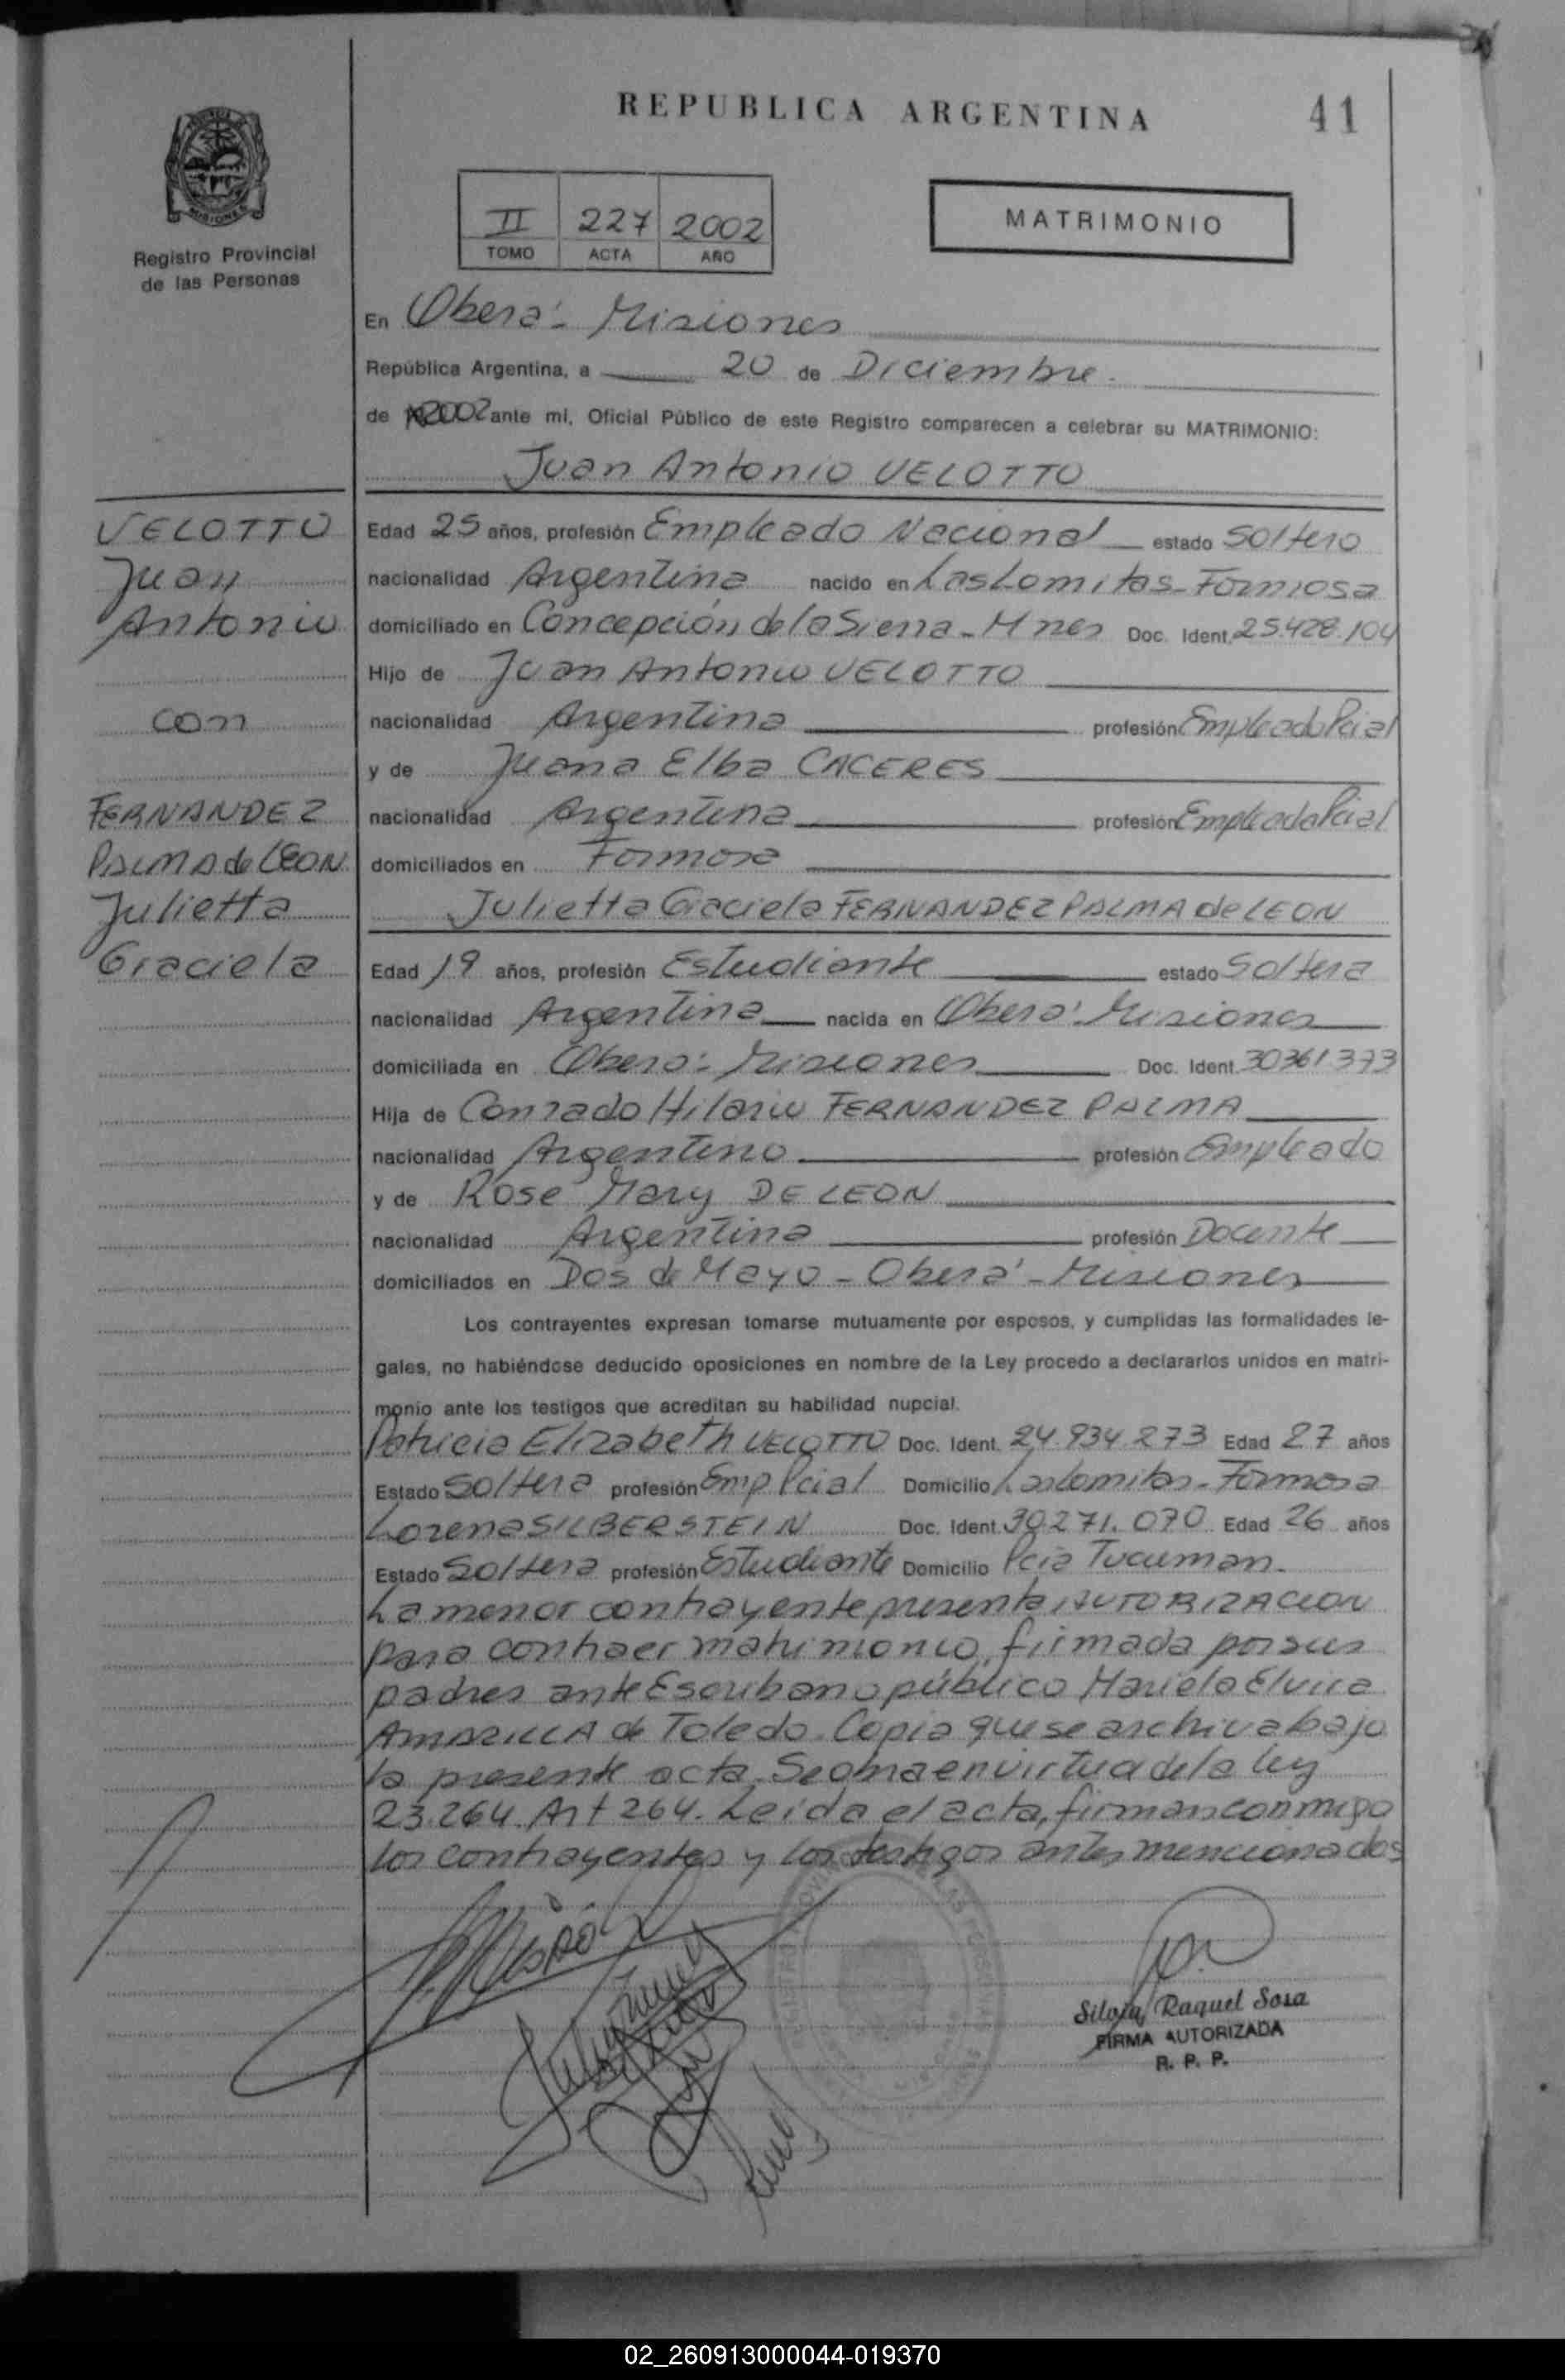 REPUBLICA ARGENTINA
41
Registro Provincial
de las Personas
II 227 2002
TOMO ACTA AÑO
MATRIMONIO
En Oberá - Misiones
República Argentina, a 20 de Diciembre.
de 2002 ante mí, Oficial Público de este Registro comparecen a celebrar su MATRIMONIO:
Juan Antonio VELOTTO
VELOTTO
Juan
Antonio
con
FERNANDEZ
PALMA de LEON
Julietta
Graciela
Edad 25 años, profesión Empleado Nacional estado Soltero
nacionalidad Argentina nacido en Las Lomitas - Formosa
domiciliado en Concepción de la Sierra - Mnes Doc. Ident. 25.428.104
Hijo de Juan Antonio VELOTTO
nacionalidad Argentina profesión Empleado Pcial
y de Juana Elba CACERES
nacionalidad Argentina profesión Empleada Pcial
domiciliados en Formosa
Julietta Graciela FERNANDEZ PALMA de LEON
Edad 19 años, profesión Estudiante estado Soltera
nacionalidad Argentina nacida en Oberá - Misiones
domiciliada en Oberá - Misiones Doc. Ident. 30361373
Hija de Conrado Hilario FERNANDEZ PALMA
nacionalidad Argentino profesión Empleado
y de Rose Mary DE LEON
nacionalidad Argentina profesión Docente
domiciliados en Dos de Mayo - Oberá - Misiones
Los contrayentes expresan tomarse mutuamente por esposos, y cumplidas las formalidades le-
gales, no habiéndose deducido oposiciones en nombre de la Ley procedo a declararlos unidos en matri-
monio ante los testigos que acreditan su habilidad nupcial.
Patricia Elizabeth VELOTTO Doc. Ident. 24.934.273 Edad 27 años
Estado Soltera profesión Emp Pcial Domicilio Las Lomitas - Formosa
Lorena SILBERSTEIN Doc. Ident. 30.271.070 Edad 26 años
Estado Soltera profesión Estudiante Domicilio Pcia Tucuman.
La menor contrayente presenta AUTORIZACION
para contraer matrimonio, firmada por sus
padres ante Escribano público Mariela Elvira
AMARILLA de Toledo. Copia que se archiva bajo
la presente acta. Se obra en virtud de la ley
23.264. Art 264. Leída el acta, firman conmigo
los contrayentes y los testigos antes mencionados
Silvia Raquel Sosa
FIRMA AUTORIZADA
R. P. P.
02_260913000044-019370